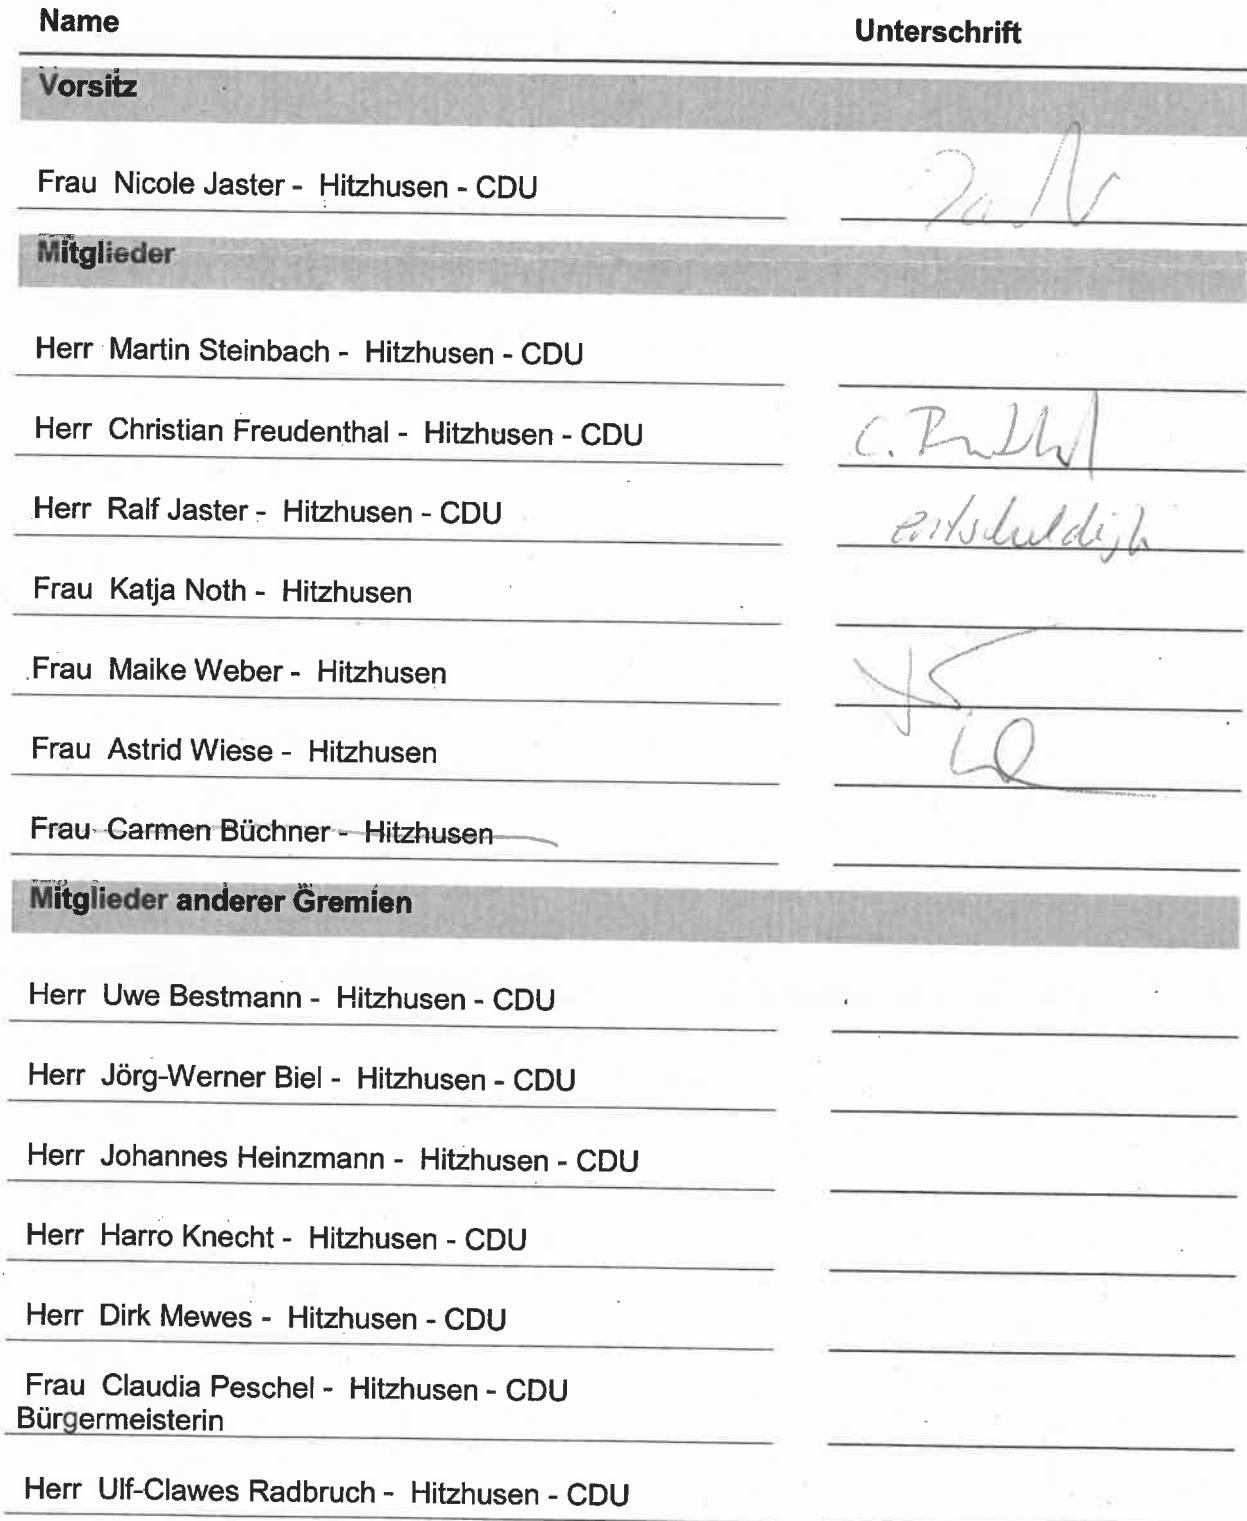 Name Unterschrift
Vorsitz
Frau Nicole Jaster - Hitzhusen - CDU
Mitglieder
Herr Martin Steinbach - Hitzhusen - CDU
Herr Christian Freudenthal - Hitzhusen - CDU
Herr Ralf Jaster - Hitzhusen - CDU entschuldigt
Frau Katja Noth - Hitzhusen
Frau Maike Weber - Hitzhusen
Frau Astrid Wiese - Hitzhusen
Frau Carmen Büchner - Hitzhusen
Mitglieder anderer Gremien
Herr Uwe Bestmann - Hitzhusen - CDU
Herr Jörg-Werner Biel - Hitzhusen - CDU
Herr Johannes Heinzmann - Hitzhusen - CDU
Herr Harro Knecht - Hitzhusen - CDU
Herr Dirk Mewes - Hitzhusen - CDU
Frau Claudia Peschel - Hitzhusen - CDU
Bürgermeisterin
Herr Ulf-Clawes Radbruch - Hitzhusen - CDU